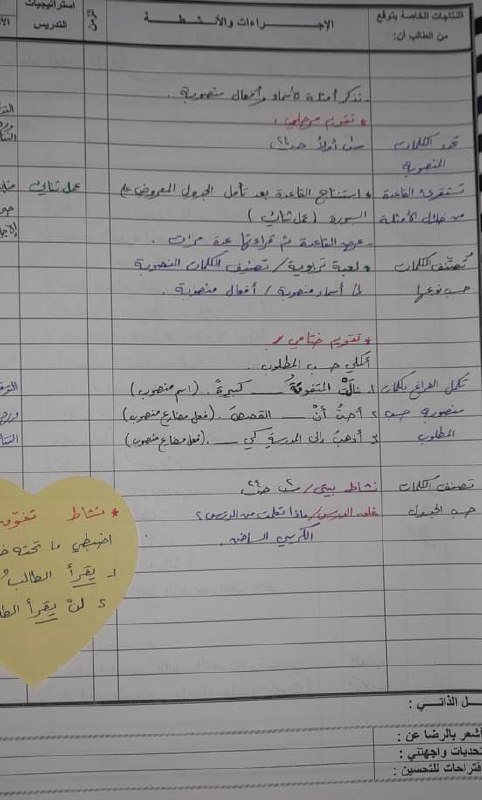 النتاجات الخاصة يتوقع من الطالب أن:
الإجراءات والأنشطة
الزمن
استراتيجيات التدريس
- تذكر أمثلة لأسماء وأفعال منصوبة.
* تقويم مرحلي:
تحدد الكلمات المنصوبة
س١ أولاً ص٢٤
تستقرئ القاعدة من خلال الأمثلة
* استنتاج القاعدة بعد تأمل الجدول المعروض على السبورة (عمل ثنائي)
عمل ثنائي
- عرض القاعدة ثم قراءتها عدة مرات.
تُصنّف الكلمات حسب نوعها
* لعبة تربوية / تصنيف الكلمات المنصوبة
أسماء منصوبة / أفعال منصوبة.
* تقويم ختامي /
أكملي حسب المطلوب.
تكمل الفراغ بكلمات منصوبة حسب المطلوب
١. نالَتْ المتفوقةُ ____ كبيرةً. (اسم منصوب)
٢ أحبُّ أنْ ____ القصصَ. (فعل مضارع منصوب)
٣ أذهبُ إلى المدرسةِ كي ____. (فعل مضارع منصوب)
تصنف الكلمات حسب الجدول
نشاط بيتي /
غلق الدرس / ماذا تعلمت من الدرس؟
الكرسي الساخن.
* نشاط
اضبطي ما تحته
١. يقرأ الطالبُ
٢ لنْ يقرأ
ل الذاتي:
أشعر بالرضا عن:
تحديات واجهتني:
قتراحات للتحسين: